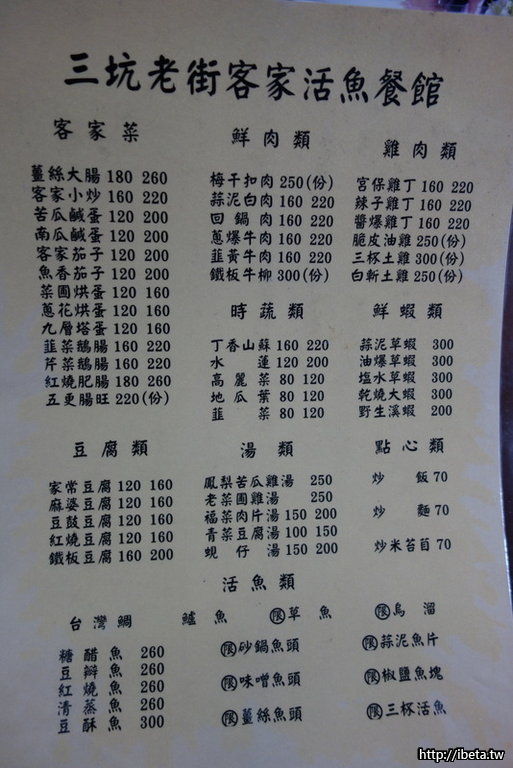 三坑老街客家活魚餐館
客家菜
薑絲大腸 180 260
客家小炒 160 220
苦瓜鹹蛋 120 200
南瓜鹹蛋 120 200
客家茄子 120 200
魚香茄子 120 200
菜圃烘蛋 120 160
蔥花烘蛋 120 160
九層塔蛋 120 160
韮菜鵝腸 160 220
芹菜鵝腸 160 220
紅燒肥腸 180 260
五更腸旺 220(份)
鮮肉類
梅干扣肉 250(份)
蒜泥白肉 160 220
回鍋肉 160 220
蔥爆牛肉 160 220
韮黃牛肉 160 220
鐵板牛柳 300(份)
雞肉類
宮保雞丁 160 220
辣子雞丁 160 220
醬爆雞丁 160 220
脆皮油雞 250(份)
三杯土雞 300(份)
白斬土雞 250(份)
時蔬類
丁香山蘇 160 220
水蓮 120 200
高麗菜 80 120
地瓜葉 80 120
韮菜 80 120
鮮蝦類
蒜泥草蝦 300
油爆草蝦 300
塩水草蝦 300
乾燒大蝦 300
野生溪蝦 200
豆腐類
家常豆腐 120 160
麻婆豆腐 120 160
豆鼓豆腐 120 160
紅燒豆腐 120 160
鐵板豆腐 160 200
湯類
鳳梨苦瓜雞湯 250
老菜圃雞湯 250
福菜肉片湯 150 200
青菜豆腐湯 100 150
蜆仔湯 150 200
點心類
炒飯 70
炒麵 70
炒米苔苜 70
活魚類
台灣鯛 鱸魚 限草魚 限烏溜
糖醋魚 260
豆瓣魚 260
紅燒魚 260
清蒸魚 260
豆酥魚 300
限砂鍋魚頭
限味噌魚頭
限薑絲魚頭
限蒜泥魚片
限椒鹽魚塊
限三杯活魚
http://ibeta.tw